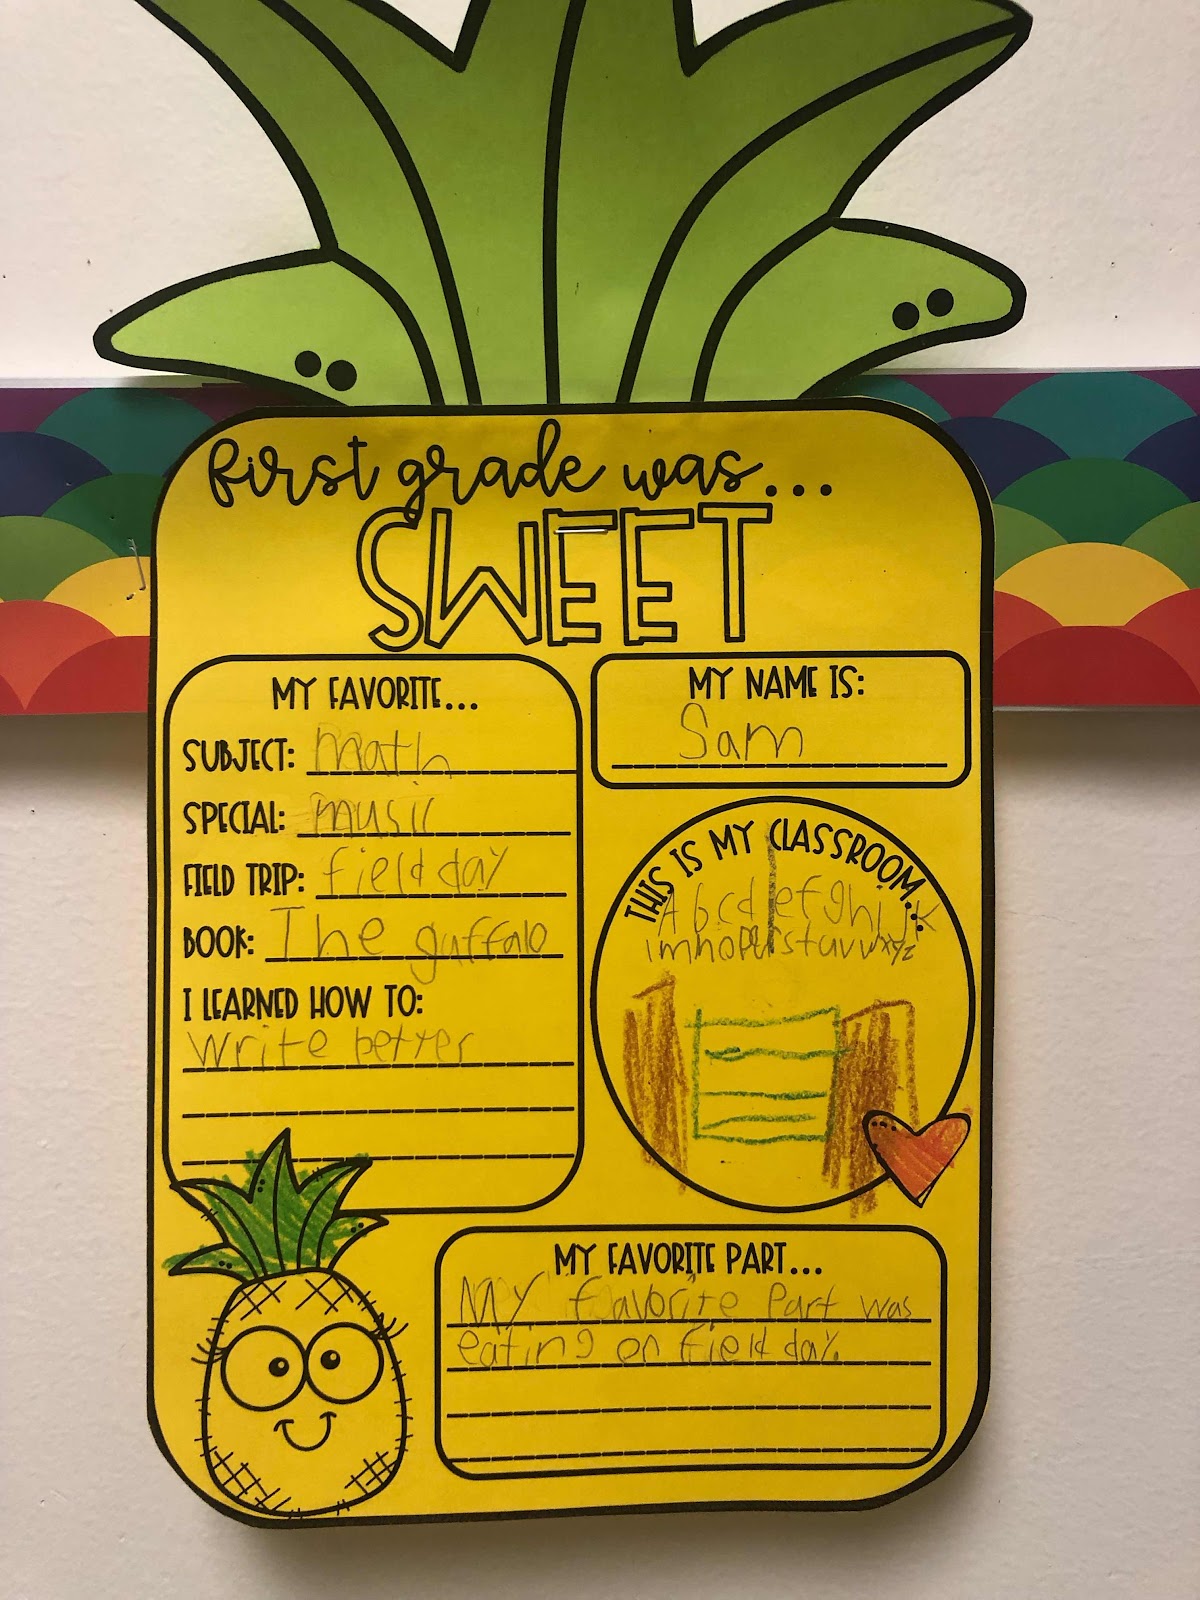 first grade was...
SWEET
MY FAVORITE...
SUBJECT: math
SPECIAL: music
FIELD TRIP: field day
BOOK: The guffalo
I LEARNED HOW TO:
write better
MY NAME IS:
Sam
THIS IS MY CLASSROOM...
A b c d e f g h i j k
l m n o p q r s t u v w x y z
MY FAVORITE PART...
My favorite Part was
eating on field day.